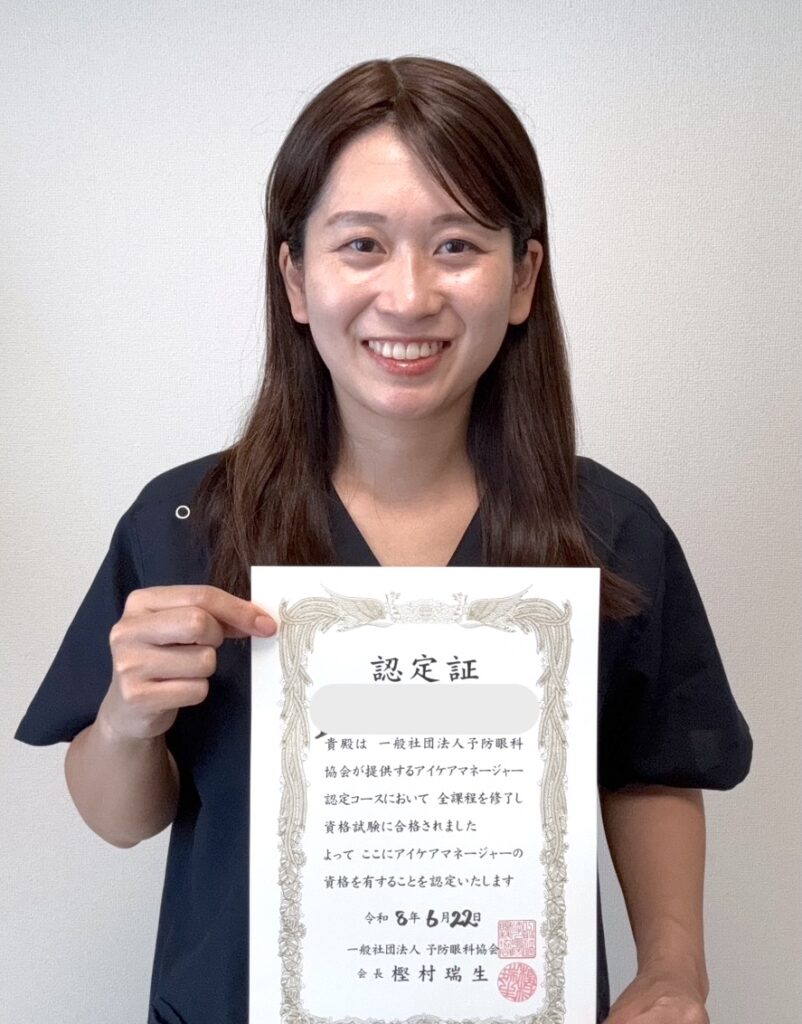 認定証
貴殿は 一般社団法人予防眼科
協会が提供するアイケアマネージャー
認定コースにおいて 全課程を修了し
資格試験に合格されました
よって ここにアイケアマネージャーの
資格を有することを認定いたします
令和 8年 6月22日
一般社団法人 予防眼科協会
会長 樫村瑞生